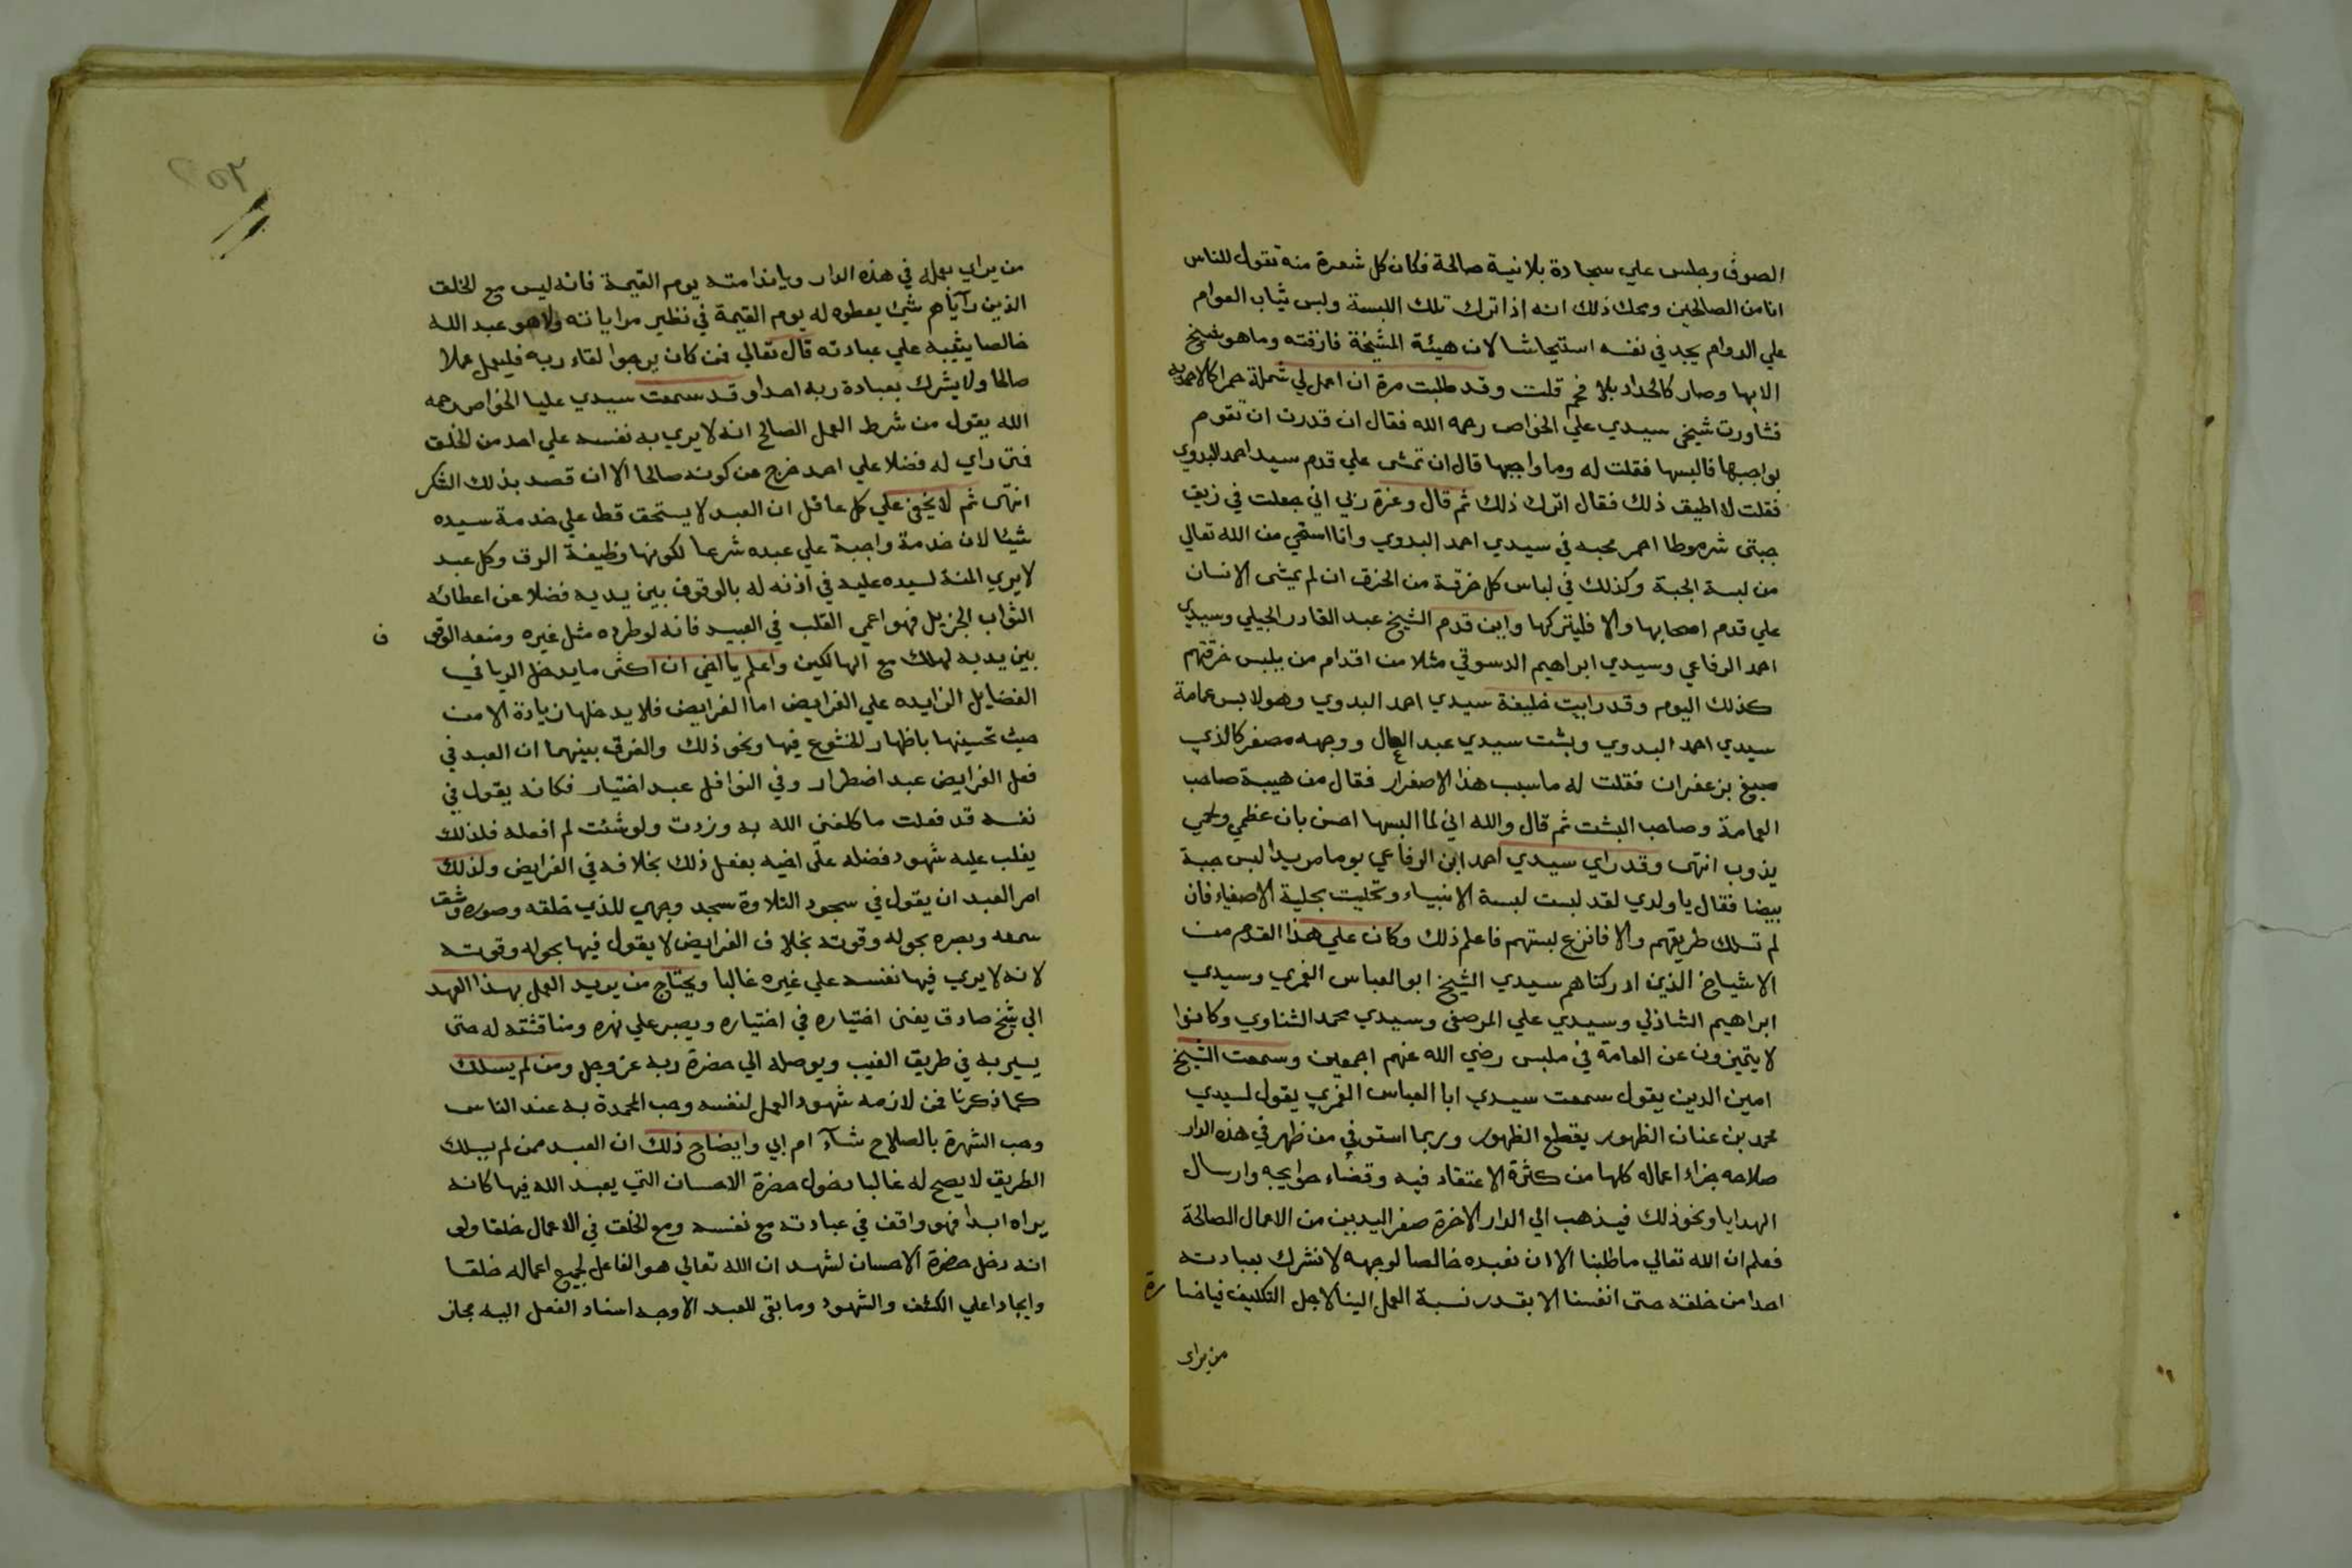 الصوف وجلس علي سجادة بلا نية صالحة فكان كل شعرة منه تقول للناس
انا من الصالحين ومحك ذلك انه اذا ترك تلك اللبسة ولبس ثياب العوام
علي الدوام يجد في نفسه استيحاشا لان هيئة المشيخة فارقته وما هو شيخ
الا بها وصار كالحداد بلا فحم قلت وقد طلبت مرة ان اعمل لي شملة حمرا كالاحمديه
فشاورت شيخي سيدي علي الخواص رحمه الله فقال ان قدرت ان تقوم
بواجبها فالبسها فقلت له وما واجبها قال ان تمشى علي قدم سيد احمد البدوي
فقلت لا اطيق ذلك فقال اترك ذلك ثم قال وعزة ربي اني جعلت في زيق
جبتى شرموطا احمر محبه في سيدي احمد البدوي وانا استحي من الله تعالي
من لبسة الجبة وكذلك في لباس كل خرقة من الخرق ان لم يمشى الانسان
علي قدم اصحابها والا فليتركها واين قدم الشيخ عبد القادر الجيلي وسيدي
احمد الرفاعي وسيدي ابراهيم الدسوقي مثلا من اقدام من يلبس خرقتهم
كذلك اليوم وقد رايت خليفة سيدي احمد البدوي وهو لابس عمامة
سيدي احمد البدوي وبشت سيدي عبد العال ووجهه مصفر كالذي
صبغ بزعفران فقلت له ما سبب هذا الاصفرار فقال من هيبة صاحب
العمامة وصاحب البشت ثم قال والله اني لما البسها احس بان عظمي ولحمي
يذوب انتهى وقد راي سيدي احمد ابن الرفاعي يوما مريدا لبس جبة
بيضا فقال يا ولدي لقد لبست لبسة الانبياء وتحليت بحلية الاصفياء فان
لم تسلك طريقهم والا فانزع لبستهم فاعلم ذلك وكان علي هذا القدم من
الاشياخ الذين ادركناهم سيدي الشيخ ابو العباس الغمري وسيدي
ابراهيم الشاذلي وسيدي علي المرصفى وسيدي محمد الشناوي وكانوا
لا يتميزون عن العامة في ملبس رضي الله عنهم اجمعين وسمعت الشيخ
امين الدين يقول سمعت سيدي ابا العباس الغمري يقول لسيدي
محمد بن عنان الظهور يقطع الظهور وربما استوفي من ظهر في هذه الدار
صلاحه جزاء اعماله كلها من كثرة الاعتقاد فيه وقضاء حوايجه وارسال
الهدايا ونحو ذلك فيذهب الي الدار الاخرة صفر اليدين من الاعمال الصالحة
فعلم ان الله تعالي ما طلبنا الا ان نعبده خالصا لوجهه لا نشرك بعبادته
احدا من خلقه حتى انفسنا الا بقدر نسبة العمل الينا لاجل التكليف فيا خسارة
من يراى
من يراي بعمله في هذه الدار ويا ندامته يوم القيمة فانه ليس مع الخلق
الذين رآياهم شئ يعطوه له يوم القيمة في نظير مراياته ولا هو عبد الله
خالصا يثيبه علي عبادته قال تعالي فمن كان يرجوا لقاء ربه فليعمل عملا
صالحا ولا يشرك بعبادة ربه احدا وقد سمعت سيدي عليا الخواص رحمه
الله يقول من شرط العمل الصالح انه لا يري به نفسه علي احد من الخلق
فمتى راي له فضلا علي احد خرج عن كونه صالحا الا ان قصد بذلك الشكر
انتهى ثم لا يخفى علي كل عاقل ان العبد لا يستحق قط علي خدمة سيده
شيئا لان خدمة واجبة علي عبده شرعا لكونها وظيفة الرق وكل عبد
لا يري المنة لسيده عليه في اذنه له بالوقوف بين يديه فضلا عن اعطائه
الثواب الجزيل فهو اعمي القلب في العبيد فانه لو طرده مثل غيره ومنعه الوقوف
بين يديه لهلك مع الهالكين واعلم يا اخي ان اكثر ما يدخل الريا في
الفضايل الزايده علي الفرايض اما الفرايض فلا يدخلها زيادة الا من
حيث تحسينها باظهار الخشوع فيها ونحو ذلك والفرق بينهما ان العبد في
فعل الفرايض عبد اضطرار وفي النوافل عبد اختيار فكانه يقول في
نفسه قد فعلت ما كلفنى الله به وزدت ولو شئت لم افعله فلذلك
يغلب عليه شهود فضله علي اخيه بفعل ذلك بخلافه في الفرايض ولذلك
امر العبد ان يقول في سجود التلاوة سجد وجهي للذي خلقه وصوره وشق
سمعه وبصره بحوله وقوته بخلاف الفرايض لا يقول فيها بحوله وقوته
لانه لا يري فيها نفسه علي غيره غالبا ويحتاج من يريد العمل بهذا العهد
الي شيخ صادق يفنى اختياره في اختياره ويصبر علي نهره ومناقشته له حتى
يسير به في طريق الغيب ويوصله الي حضرة ربه عز وجل ومن لم يسلك
كما ذكرنا فمن لازمه شهود العمل لنفسه وحب المحمدة به عند الناس
وحب الشهرة بالصلاح شآء ام ابي وايضاح ذلك ان العبد ممن لم يسلك
الطريق لا يصح له غالبا دخول حضرة الاحسان التي يعبد الله فيها كانه
يراه ابدا فهو واقف في عبادته مع نفسه ومع الخلق في الاعمال خلقا ولو
انه دخل حضرة الاحسان لشهد ان الله تعالي هو الفاعل لجميع اعماله خلقا
وايجادا علي الكشف والشهود وما بقي للعبد الا وجه اسناد الفعل اليه مجاز